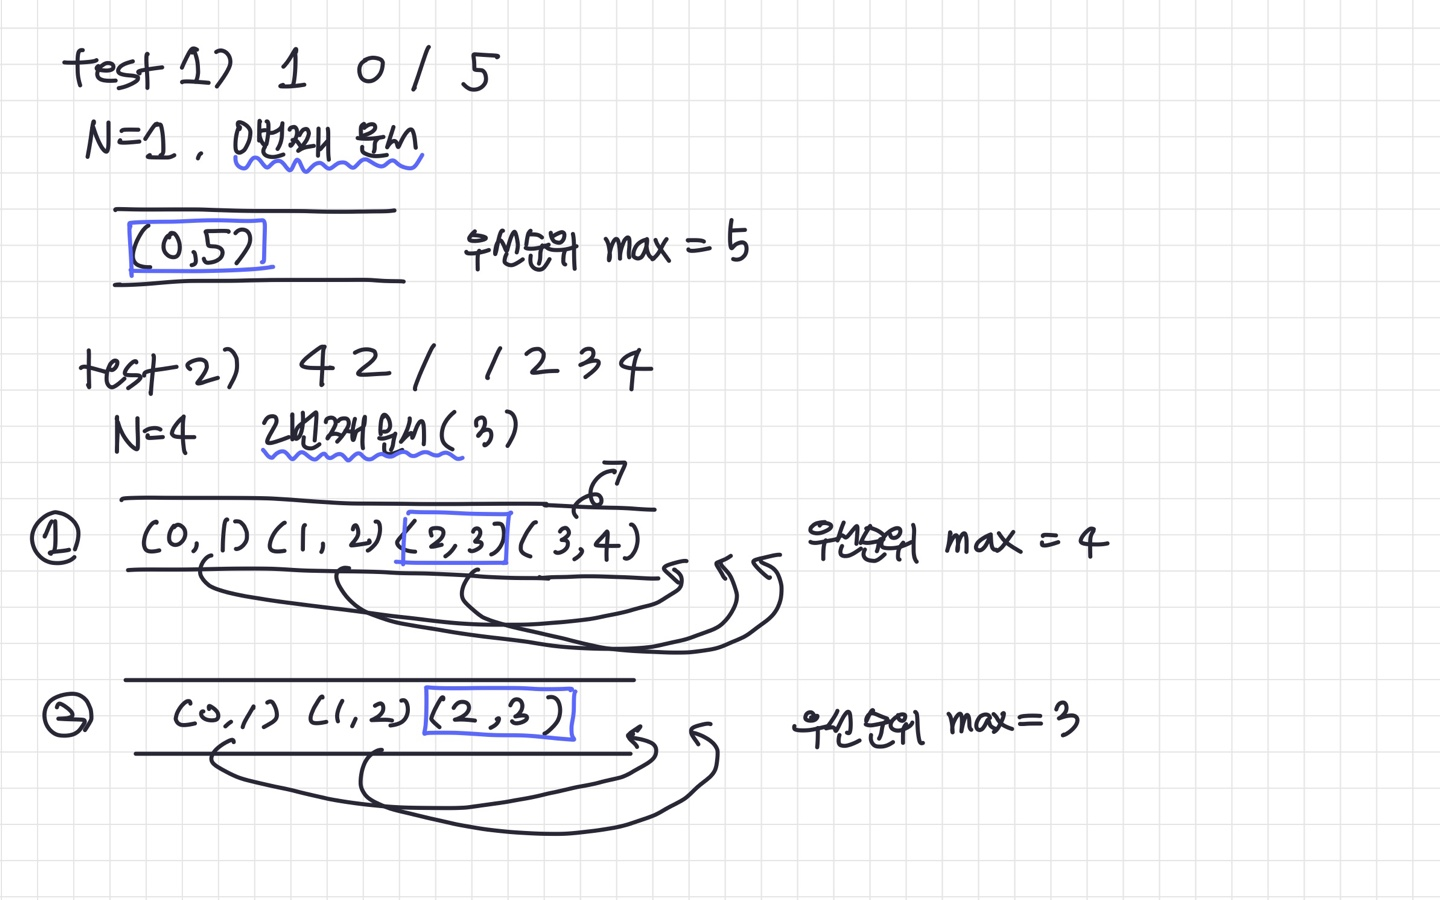 test 1) 1 0 / 5
N=1. 0번째 문서
(0,5) 우선순위 max = 5
test 2) 4 2 / 1 2 3 4
N=4 2번째 문서 (3)
① (0,1) (1,2) (2,3) (3,4) 우선순위 max = 4
② (0,1) (1,2) (2,3) 우선순위 max = 3